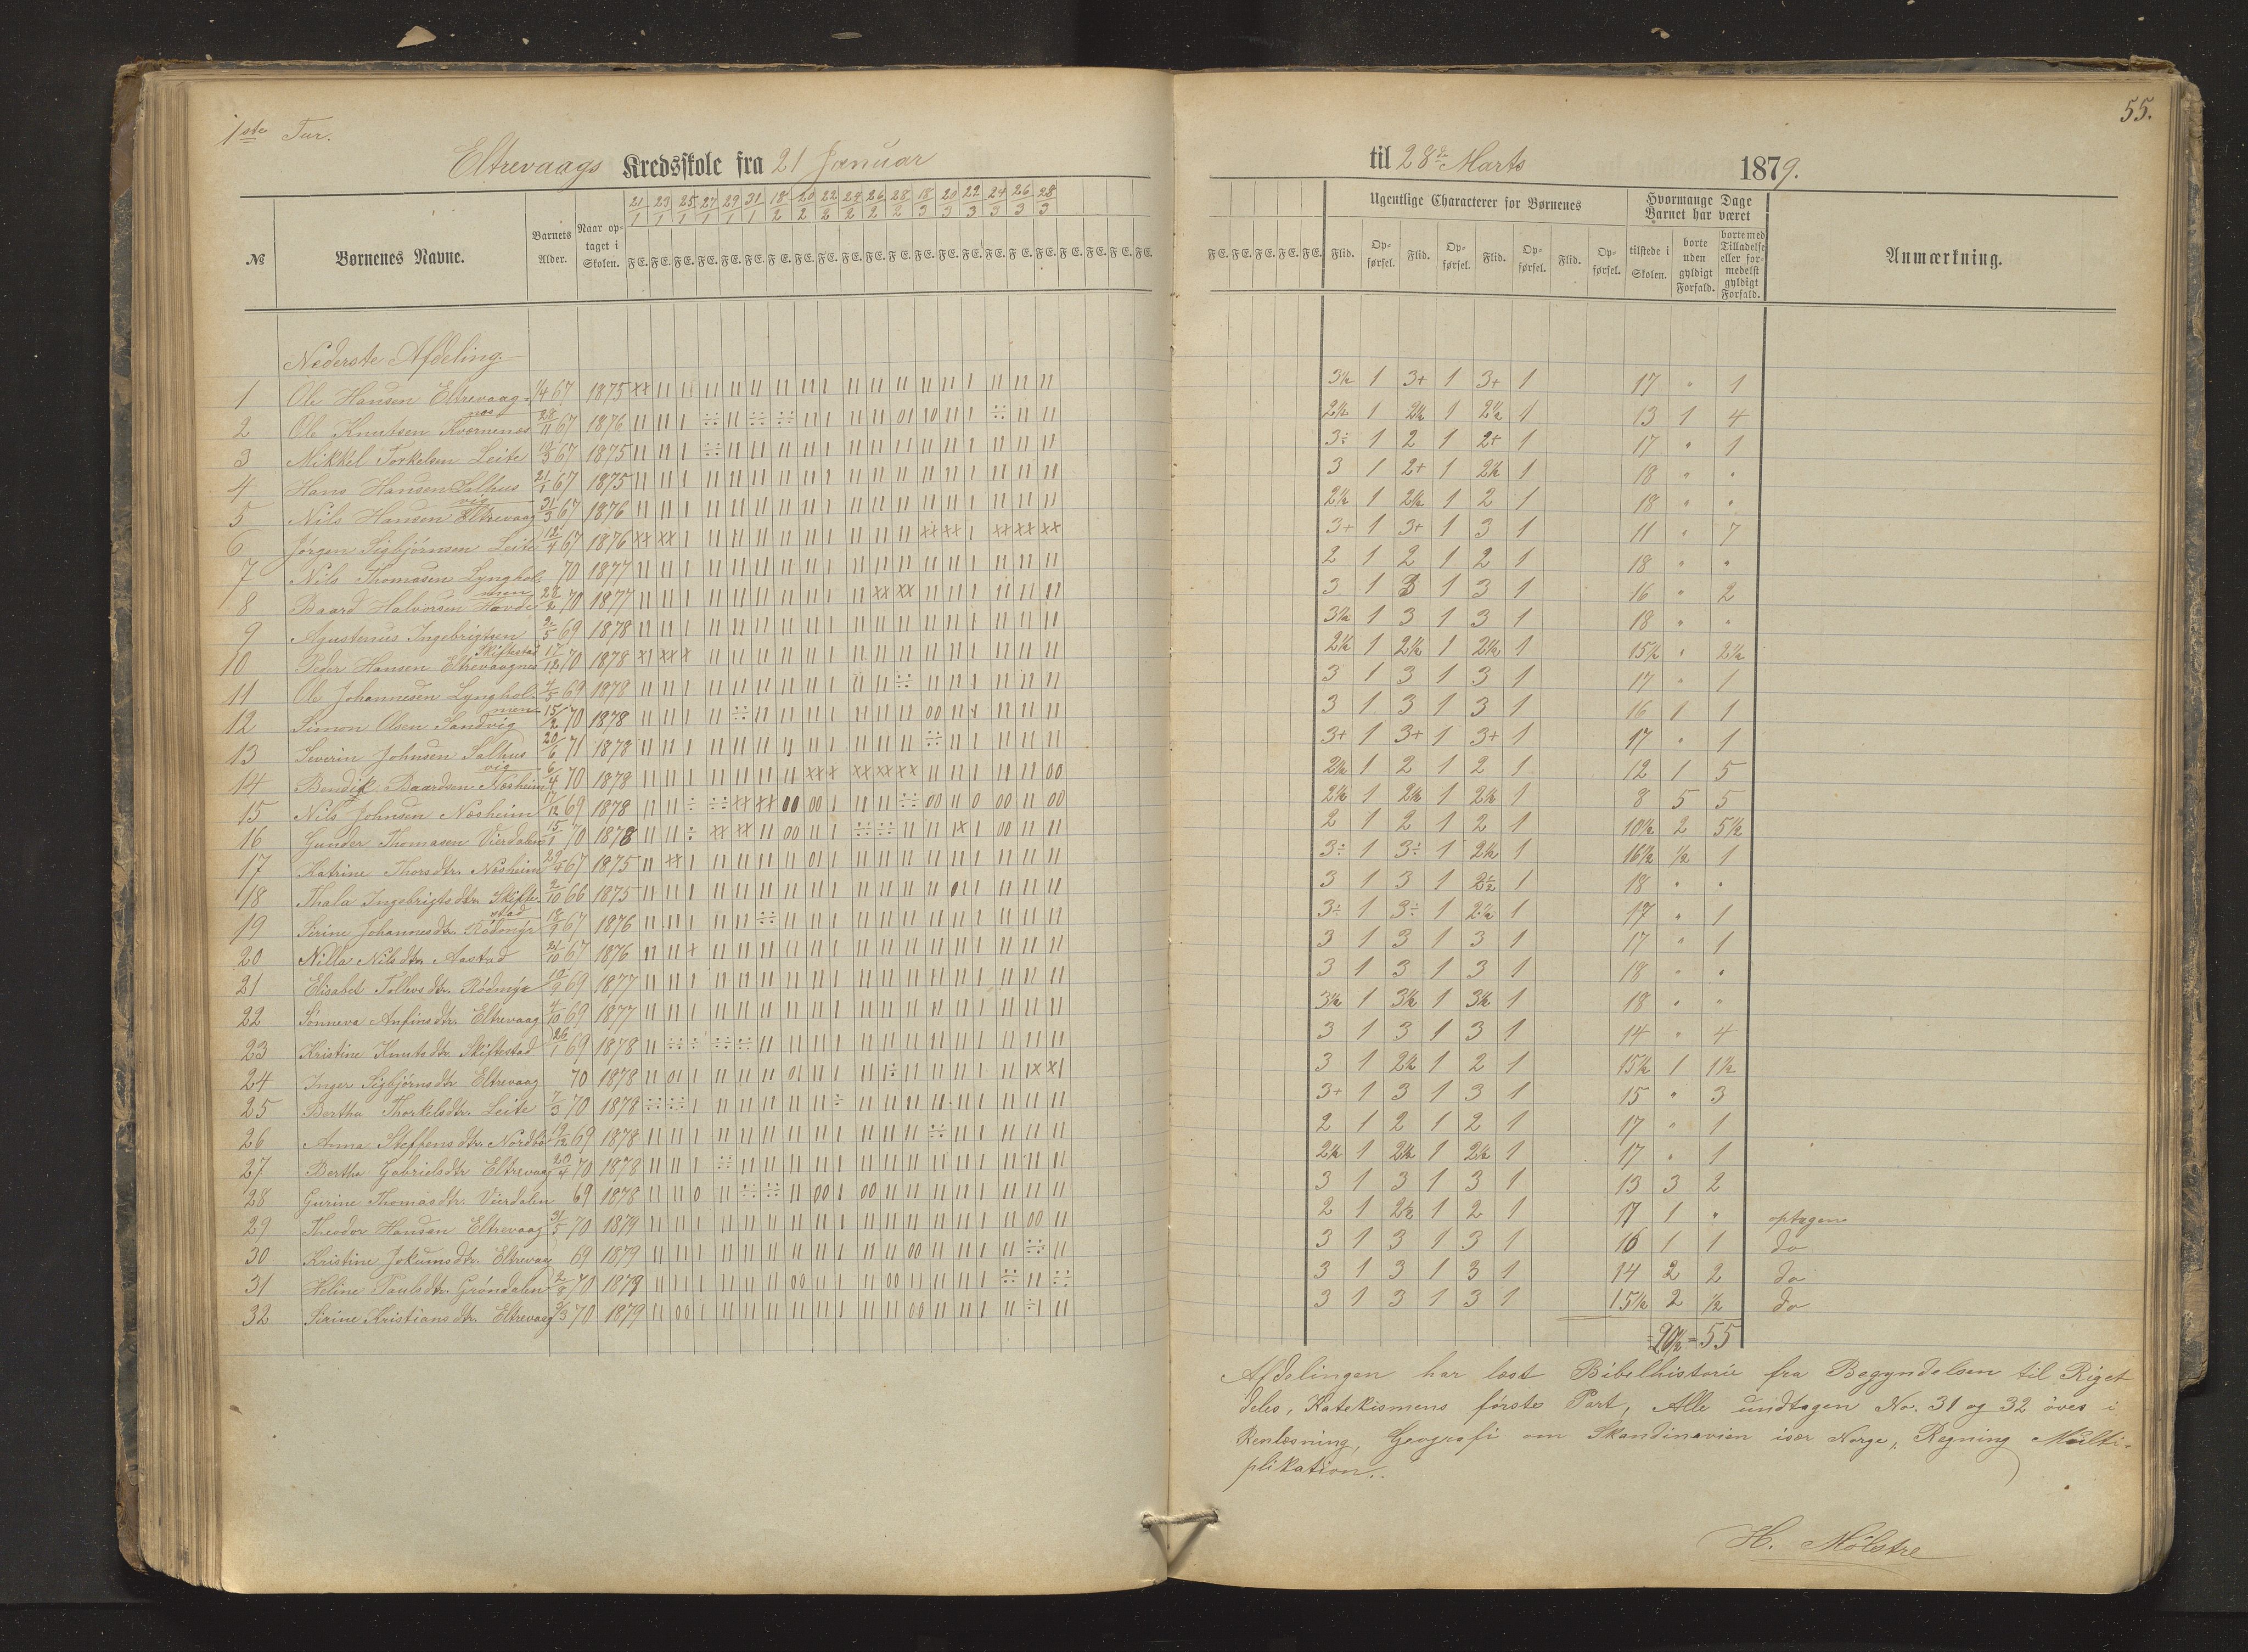 55.
1ste Tur.
Eltrevaags Kredsskole fra 21 Januar til 28de Marts 1879.
№ Børnenes Navne. Barnets Alder. Naar optaget i Skolen. 21/1 23/1 25/1 27/1 29/1 31/1 18/2 20/2 22/2 24/2 26/2 28/2 18/3 20/3 22/3 24/3 26/3 28/3
F E. F E. F E. F E. F E. F E. F E. F E. F E. F E. F E. F E. F E. F E. F E. F E. F E. F E. F E. F E. F E. F E.
F E. F E. F E. F E. F E. Ugentlige Characterer for Børnenes Hvormange Dage Barnet har været Anmærkning.
Flid. Opførsel. Flid. Opførsel. Flid. Opførsel. Flid. Opførsel. tilstede i Skolen. borte uden gyldigt Forfald. borte med Tilladelse eller formedelst gyldigt Forfald.
Nederste Afdeling.
1 Ole Hansen Eltrevaag 1/4 67 1875 3½ 1 3+ 1 3+ 1 17 " 1
2 Ole Knutsen Kvernenes 28/11 67 1876 2½ 1 2½ 1 2½ 1 13 1 4
3 Mikkel Torkelsen Leite 67 1875 3÷ 1 2 1 2+ 1 17 " 1
4 Hans Hansen Salhusvig 21/1 67 1875 3 1 2+ 1 2½ 1 18 " "
5 Nils Hansen Eltrevaag 31/3 67 1876 2½ 1 2½ 1 2 1 18 " "
6 Jørgen Sigbjørnsen Leite 12/4 67 1876 3+ 1 3+ 1 3 1 11 " 7
7 Nils Thomasen Lyngholmen 70 1877 2 1 2 1 2 1 18 " "
8 Baard Halvorsen Hovde 28/2 70 1877 3 1 3 1 3 1 16 " 2
9 Agustenus Ingebrigtsen Skiftestad 2/5 69 1878 3½ 1 3 1 3 1 18 " "
10 Peder Hansen Eltrevaagnes 17/12 70 1878 2½ 1 2½ 1 2½ 1 15½ " 2½
11 Ole Johannesen Lyngholmen 4/5 69 1878 3 1 3 1 3 1 17 " 1
12 Simon Olsen Sandvig 15/2 70 1878 3 1 3 1 3 1 16 1 1
13 Severin Johnsen Salhusvig 20/6 71 1878 3+ 1 3+ 1 3+ 1 17 " 1
14 Bendik Baardsen Næsheim 6/4 70 1878 2½ 1 2 1 2 1 12 1 5
15 Nils Johnsen Næsheim 17/12 69 1878 2½ 1 2½ 1 2½ 1 8 5 5
16 Gunder Thomasen Vierdalen 15/1 70 1878 2 1 2 1 2 1 10½ 2 5½
17 Katrine Thorsdtr. Næsheim 29/4 67 1875 3÷ 1 3÷ 1 2½ 1 16½ ½ 1
18 Thala Ingebrigtsdtr. Skiftestad 2/10 66 1875 3 1 3 1 2½ 1 18 " "
19 Serine Johannesdtr. Rødmyr 67 1876 3÷ 1 3÷ 1 2½ 1 17 " 1
20 Nilla Nilsdtr. Aastad 21/10 67 1876 3 1 3 1 3 1 17 " 1
21 Elisabet Tollevsdtr. Rødmyr 69 1877 3 1 3 1 3 1 18 " "
22 Sønneva Anfinsdtr. Eltrevaag 4/10 69 1877 3½ 1 3½ 1 3½ 1 18 " "
23 Kristine Knutsdtr. Skiftestad 26/1 69 1878 3 1 3 1 3 1 14 " 4
24 Inger Sigbjørnsdtr Eltrevaag 70 1878 3 1 2½ 1 2 1 15½ 1 1½
25 Bertha Thorkelsdtr. Leite 7/3 70 1878 3+ 1 3 1 3 1 15 " 3
26 Anna Steffensdtr. Nordbø 19/12 69 1878 2 1 2 1 2 1 17 " 1
27 Bertha Gabrielsdtr Eltrevaag 20/4 70 1878 2½ 1 2½ 1 2½ 1 17 " 1
28 Gurine Thomasdtr. Vierdalen 69 1878 3 1 3 1 3 1 13 3 2
29 Theodor Hansen Eltrevaag 31/5 70 1879 2 1 2½ 1 2 1 17 1 " optagen
30 Kristine Jokumsdtr. Eltrevaag 69 1879 3 1 3 1 3 1 16 1 1 do
31 Heline Paulsdtr. Grøndalen 70 1879 3 1 3 1 3 1 14 2 2 do
32 Serine Kristiansdtr. Eltrevaag 70 1879 3 1 3 1 3 1 15½ 2 ½ do
=20½ = 55
Afdelingen har læst Bibelhistorie fra Begyndelsen til Riget
deles, Katekismens første Part, Alle undtagen No. 31 og 32 øves i
Renlæsning, Geografi om Skandinavien især Norge, Regning Multi-
plikation.
H. Mølstre